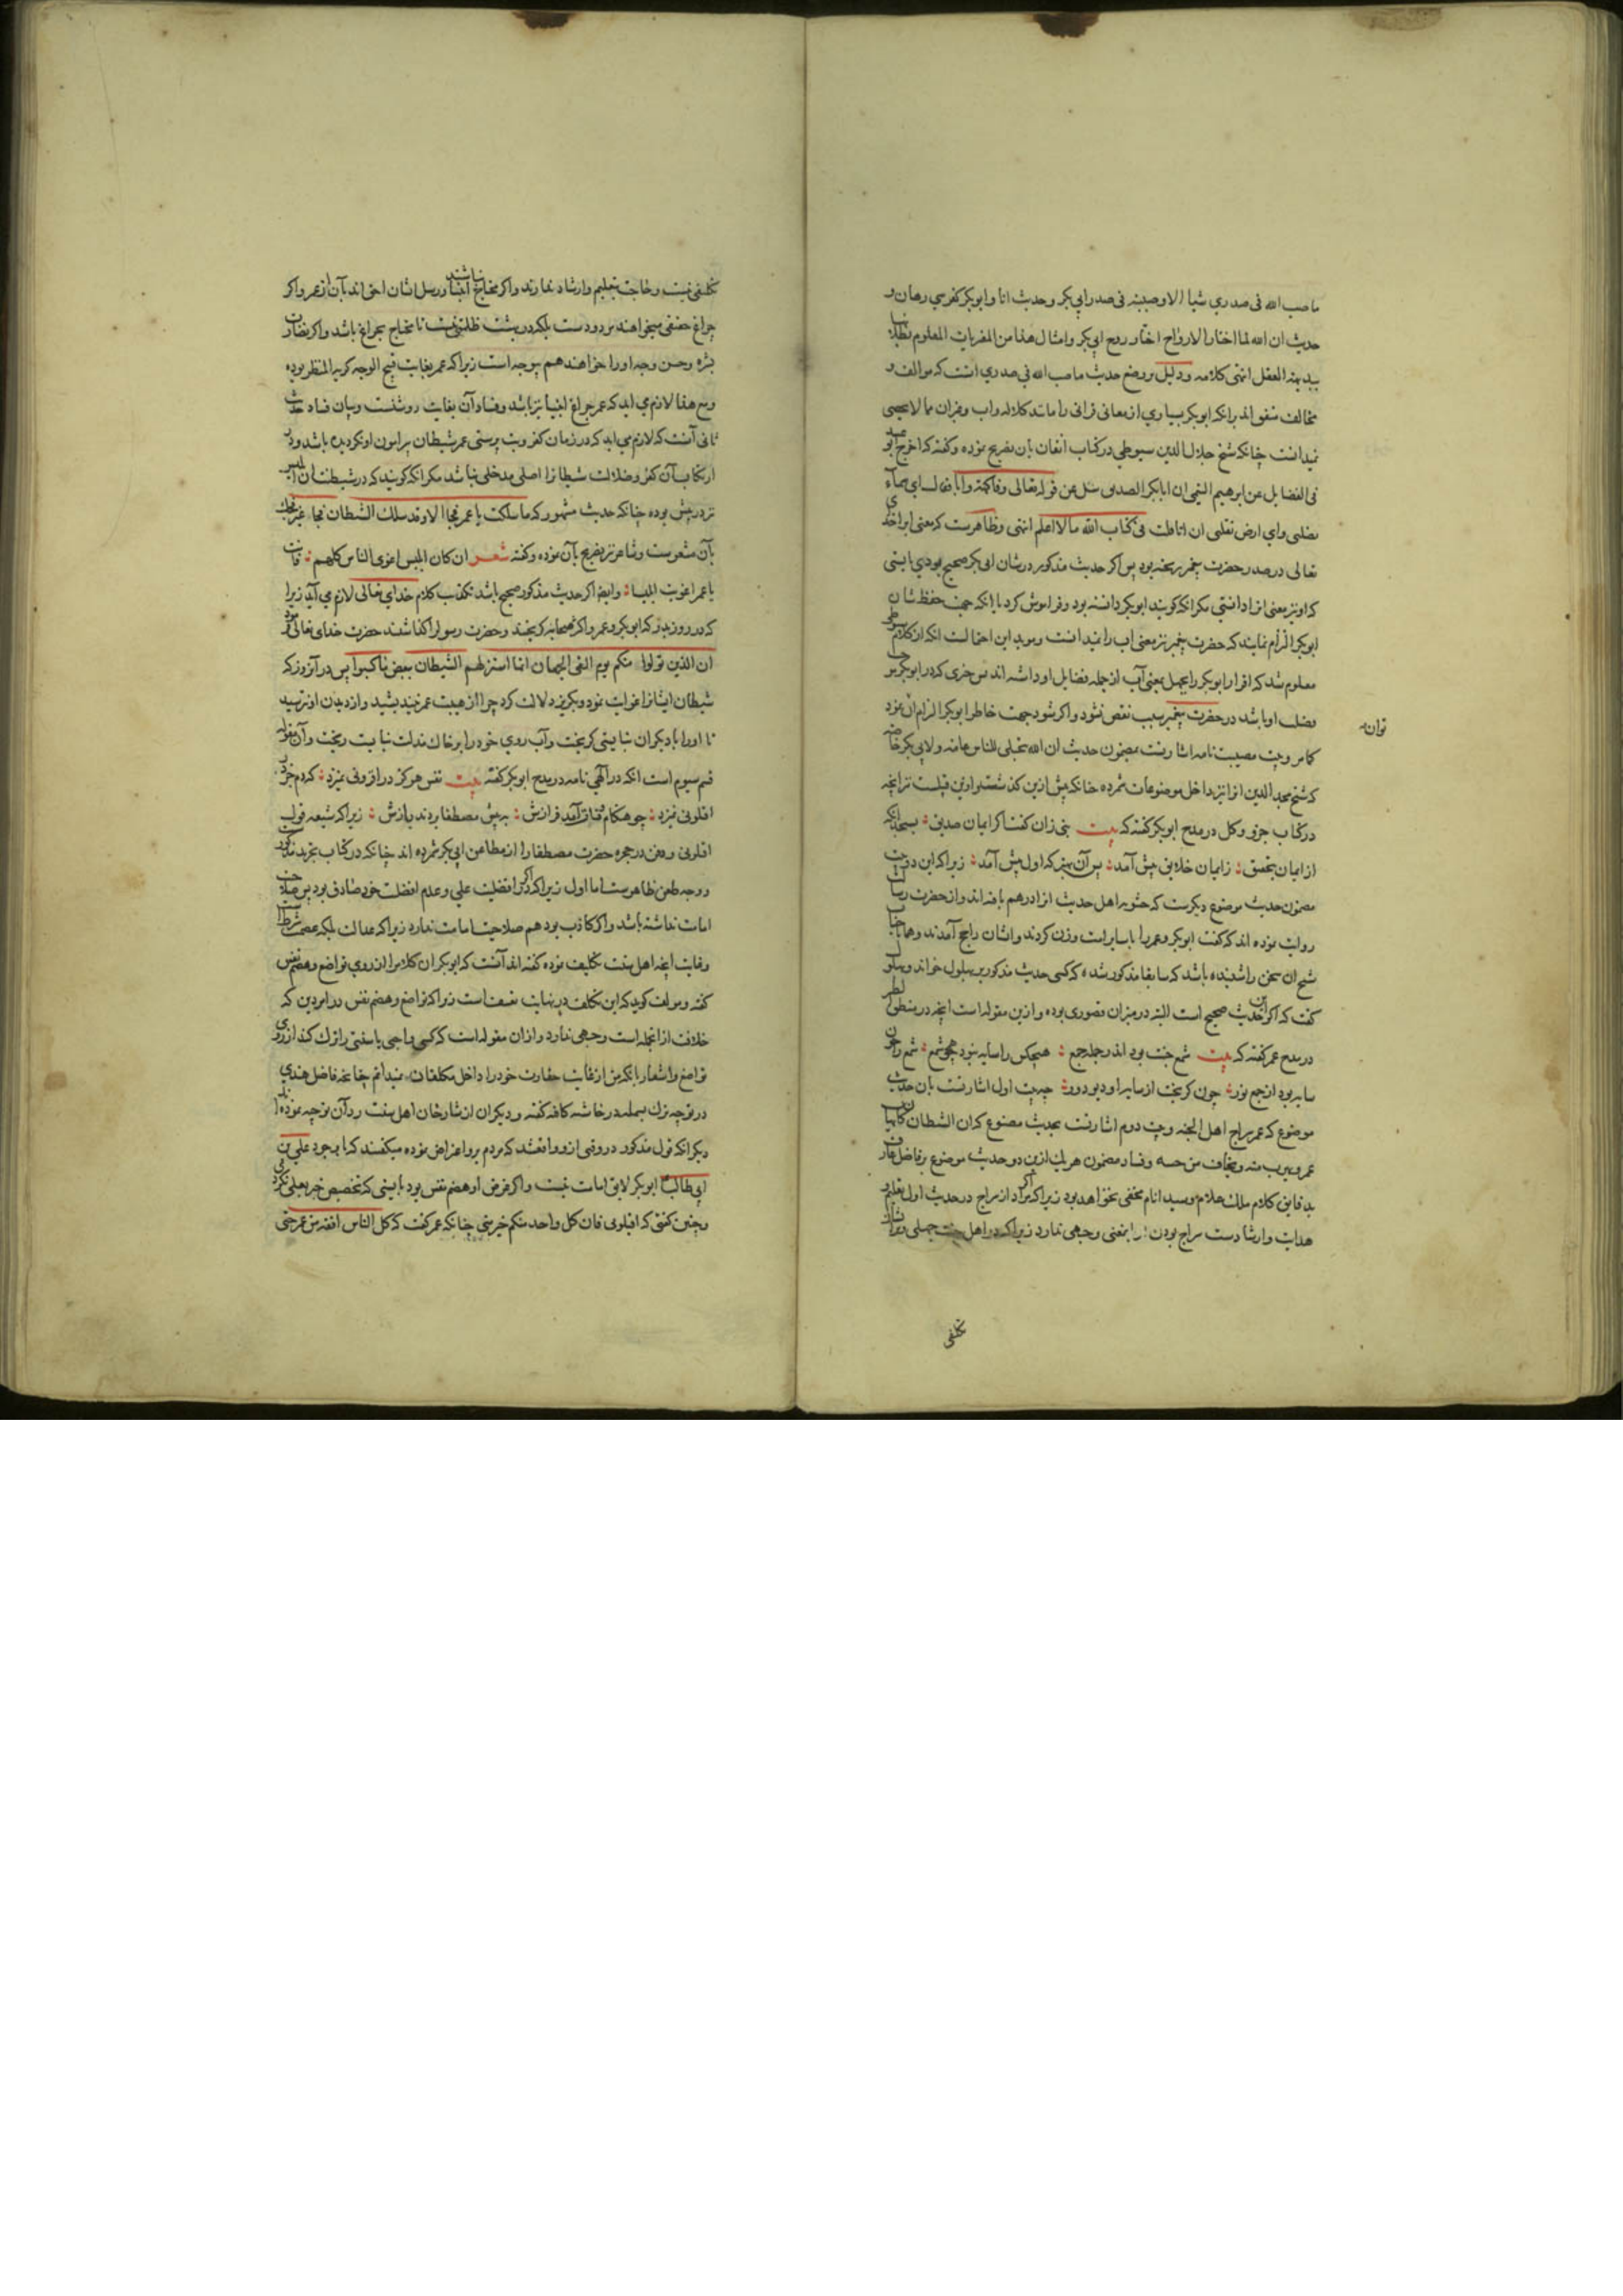 ما صب الله فی صدري شیأ الا وصببته فی صدر ابي بکر وحدیث انا وابوبکر کفرسي رهان و
حدیث ان الله لما اختار الارواح اختار روح ابي بکر وامثال هذا من المفتریات المعلوم بطلانها
ببدیهة العقل انتهی کلامه ودلیل بر وضع حدیث ما صب الله فی صدري انست که موالف و
مخالف متفق اند برانکه ابوبکر بسیاري از معانی قرانی را مانند کلاله واب وغیران مما لا یحصی
نمیدانست چنانکه شیخ جلال الدین سیوطي در کتاب اتقان بان تصریح نموده وگفته که اخرج ابو عبید
فی الفضایل عن ابرهیم التیمي ان ابابکر الصدیق سئل عن قوله تعالی وفاکهة وابا فقال ای سماء
تظلنی واي ارض تقلنی ان انا قلت فی کتاب الله ما لا اعلم انتهی وظاهرست که معنی اب را خدای
تعالی در صدر حضرت پیغمبر ریخته بود پس اگر حدیث مذکور در شان ابی بکر صحیح بودي بایستی
که او نیز معنی انرا دانستي مگر انکه گویند ابوبکر دانسته بود وفراموش کرد یا انکه جهت حفظ شان
ابوبکر الزام نمایند که حضرت پیغمبر نیز معنی اب را نمیدانست وموید این احتمالست انکه از کلام سیوطی
معلوم شد که اقرار ابوبکر را بجهل بمعنی آب از جمله فضایل او داشته اند پس چیزی که در ابوبکر موجب
فضل او باشد در حضرت پیغمبر سبب نقص نشود واگر شود جهت خاطر ابوبکر الزام ان نمود توان
کما مر وبیت مصیبت نامه اشارتست بمضمون حدیث ان الله یتجلی للناس عامة ولابی بکر خاصة
که شیخ مجد الدین انرا نیز داخل موضوعات شمرده چنانکه پیش ازین گذشت و ازین قبیلست نیز انچه
در کتاب جزو وکل در مدح ابوبکر گفته که بیت نبی زان گفت اگر ایمان صدیق : بسنجد انکه
از ایمان بتحقیق : زایمان خلایق بیش آمد : پس آن بهتر که اول پیش آمد : زیرا که این دو بیت
مضمون حدیث موضوع دیگرست که حشویه اهل حدیث انرا درهم بافته اند و از حضرت رسالت
روایت نموده اند که گفت ابوبکر وعمر را با سایر امت وزن کردند وایشان راجح آمدند وهمانا جناب
شیخ ان سخن را شنیده باشد که سابقا مذکور شده که کسی حدیث مذکور بر بهلول خواند وبهلول
گفت که اگر این حدیث صحیح است البته در میزان قصوری بوده وازین مقوله است انچه در منطق الطیر
در مدح عمر گفته که بیت شمع جنت بود اندر جمله جمع : هیچکس را سایه نبود همچو شمع : شمع را چون
سایه بود از جمع نور : چون گریخت از سایه او دیو دور : چه بیت اول اشارتست بان حدیث
موضوع که عمر سراج اهل الجنه وبیت دوم اشارتست بحدیث مصنوع که ان الشیطان کان یهاب
عمر ویهرب منه ویخاف من حسه وفساد مضمون هر یک ازین دو حدیث موضوع بر فاضل عارف
بدقایق کلام ملک علام وسید انام مخفی نخواهد بود زیرا که اگر مراد از سراج در حدیث اول تعلیم و
هدایت وارشادست سراج بودن را معنی وجهی ندارد زیرا که در اهل جنت جهلی ونیازی
تکلفی
تکلفی نیست وحاجت بتعلیم وارشاد ندارند واگر محتاج باشند انبیا ورسل ایشان احق اند بآن از عمر واگر
چراغ حقیقی میخواهند مردودست بلکه در بهشت ظلمتی نیست تا محتاج بچراغ باشد واگر نضارت
بشره وحسن وجه او را خواهند هم بیوجه است زیرا که عمر بغایت قبیح الوجه کریه المنظر بوده
ومع هذا لازم مي اید که عمر چراغ انبیا نیز باشد وفساد آن بغایت روشنست وبیان فساد حدیث
ثانی آنست که لازم می اید که در زمان کفر وبت پرستی عمر شیطان پیرامون او نگردیده باشد ودر
ارتکاب آن کفر وضلالت شیطانرا اصلی مدخلی نباشد مگر انکه گویند که در شیطنت از ابلیس
نیز در پیش بوده چنانکه حدیث مشهور که ما سلکت یا عمر فجا الا وقد سلک الشیطان فجا غیر فجک
بآن مشعرست وشاعر نیز تصریح بآن نموده وگفته شعر ان کان ابلیس اغوی الناس کلهم : فانت
یا عمر اغویت ابلیسا : وایضا اگر حدیث مذکور صحیح باشد تکذیب کلام خدای تعالی لازم مي آید زیرا
که در روز بدر که ابوبکر وعمر واکثر صحابه گریختند وحضرت رسول را گذاشتند حضرت خدای تعالی فرمود
ان الذین تولوا منکم یوم التقی الجمعان انما استزلهم الشیطان ببعض ما کسبوا پس در آنروز که
شیطان ایشانرا اغوایت نمود وبگریز دلالت کرد چرا از هیبت عمر نیندیشید واز دیدن او نترسید
تا او را با دیگران نبایستی گریخت وآب روي خود را بر خاک مذلت نبایست ریخت وآن مقوله
قسم سیوم است انکه در الهي نامه در مدح ابوبکر گفته بیت نفس هرگز در افزونی نمیزد : که دم جز در
اقیلونی نمیزد : چو هنگام قتال آمد فرازش : به پیش مصطفا بردند بازش : زیرا که شیعه قول
اقیلونی ودفن در حجره حضرت مصطفا را از مطاعن ابی بکر شمرده اند چنانکه در کتاب تجرید مذکور
ووجه طعن ظاهرست اما اول زیرا که اگر در افضلیت علی وعدم افضلیت خود صادق بود پس صلاحیت
امامت نداشته باشد واگر کاذب بود هم صلاحیت امامت ندارد زیرا که عدالت بلکه عصمت شرط است
وغایت انچه اهل سنت تکلیف نموده گفته اند آنست که ابوبکر ان کلام را از روي تواضع وهضم نفس
گفته ومولف گوید که این تکلف در نهایت تعسف است زیرا که تواضع وهضم نفس در امر دین که
خلافت از انجمله است وجهی ندارد وازان مقوله است که کسی واجبی یا سنتی را ترک کند از روی
تواضع واشعار بانکه من از غایت حقارت خود را داخل مکلفان نمیدانم چنانچه فاضل هندي
در توجیه ترک بسمله در حاشیه کافیه گفته ودیگران از شارحان اهل سنت رد آن توجیه نموده اند
دیگر انکه قول مذکور در وقتی ازو واقع شد که مردم برو اعتراض نموده میگفتند که با وجود علي بن
ابي طالب ابوبکر لایق امامت نیست واگر غرض او هضم نفس بود بایستی که تخصیص خیر بعلی نکردی
وچنین گفتی که اقیلونی فان کل واحد منکم خیر منی چنانکه عمر گفت که کل الناس افقه من عمر حتی